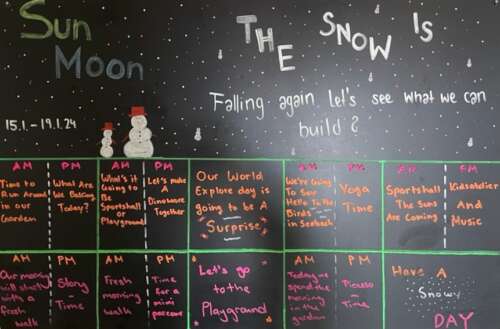 Sun
Moon
THE SNOW IS
Falling again Let's see what we can
build?
15.1. – 19.1.24
AM
Time to
Run Around
in our
Garden
PM
What Are
We Baking
Today?
AM
What's it
Going to
Be
Sportshall
or
Playground
PM
Let's make
A
Dinosaure
Together
Our World
Explore day is
going to be A
Surprise
AM
We're Going
To Say
Hello To The
Birds
in Seebach
PM
Yoga
Time
AM
Sportshall
The Suns
Are Coming
PM
Kidsatelier
And
Music
Our morning
will start
with a
fresh
walk
Story
– Time
Fresh
morning
walk
Time
for a
mini
parcour
Let's go
to the
Playground
Today we
spend the
morning
in the
garden
Picasso
– Time
Have A
Snowy
DAY